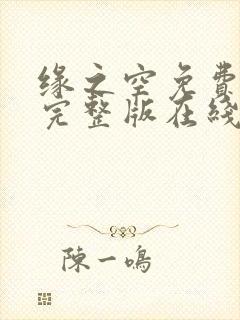 缘之空免費
完整版在綫
陳一鳴